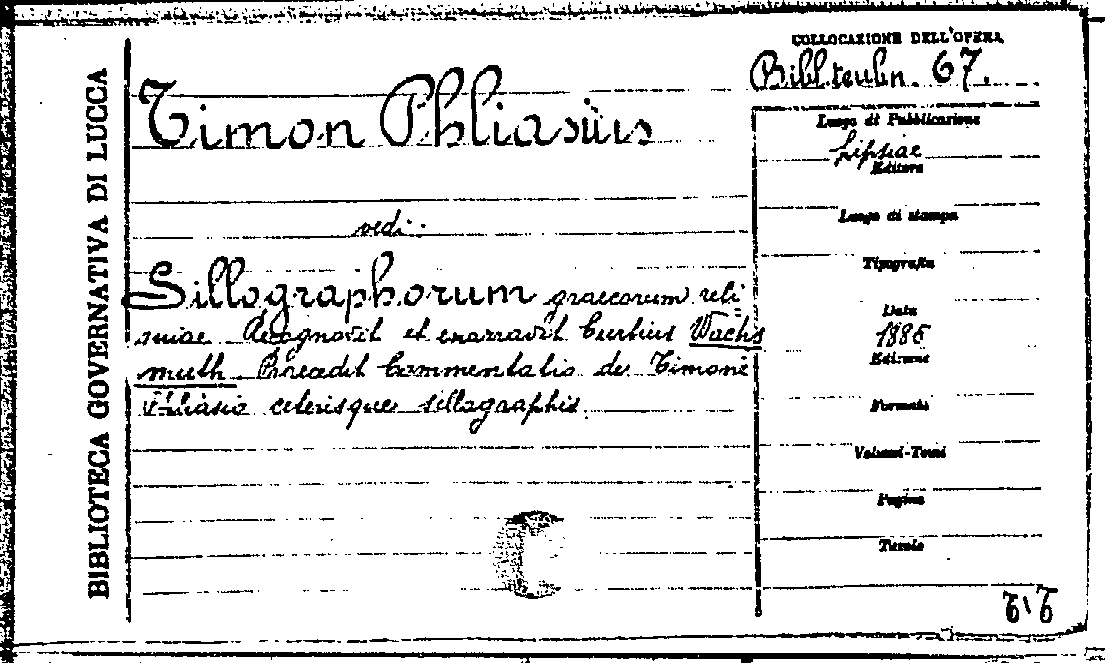 BIBLIOTECA GOVERNATIVA DI LUCCA
COLLOCAZIONE DELL'OPERA
Bibl. teubn. 67.
Timon Phliasius
vedi:
Sillographorum graecorum reli
quiae. Recognovit et enarravit Curtius Wachs
muth. Praecedit Commentatio de Timone
Phliasio ceterisque sillographis.
Luogo di Pubblicazione
Lipsiae
Editore
Luogo di stampa
Tipografia
Data
1885
Edizione
Formato
Volumi-Tomi
Pagine
Tavole